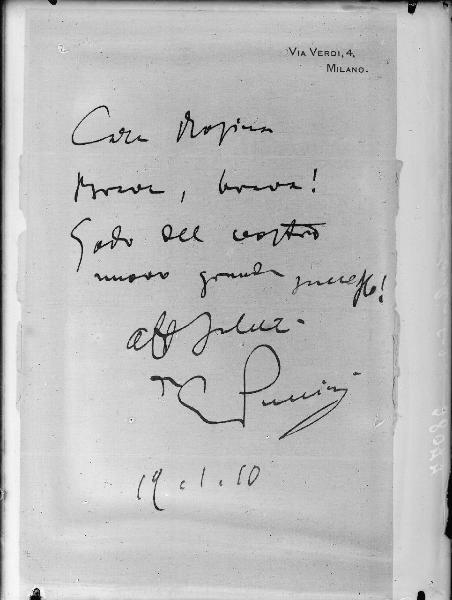 VIA VERDI, 4.
MILANO.
Cara Rosina
Brava, brava!
Godo del vostro
nuovo grande successo!
aff
G Puccini
19.1.10